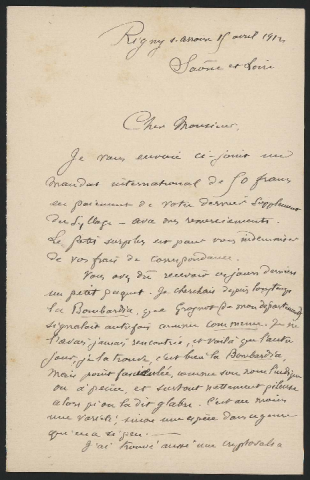 Rigny s. Arroux 15 avril 1912
Saône et Loire
Cher Monsieur,
Je vous envoie ci-joint un
mandat international de 50 francs
en paiement de votre dernier Supplement
du Syllage – avec des remerciements.
Le petit surplus est pour vous indemniser
de vos frais de correspondance.
Vous avez dû recevoir ces jours derniers
un petit paquet. Je cherchais depuis longtemps
la Bombardia, que Grognot (de mon département)
signalait autrefois comme commune. Je ne
l'avais jamais rencontrée, et voilà que l'autre
jour, je la trouve, c'est bien la Bombardia,
mais point fasciculée, comme son nom l'indique
ou à peine et surtout nettement pileuse
alors qu'on la dit glabre. C'est au moins
une variété, sinon une espèce dans ce genre
qui en a si peu. —
J'ai trouvé aussi une cryptovalsa